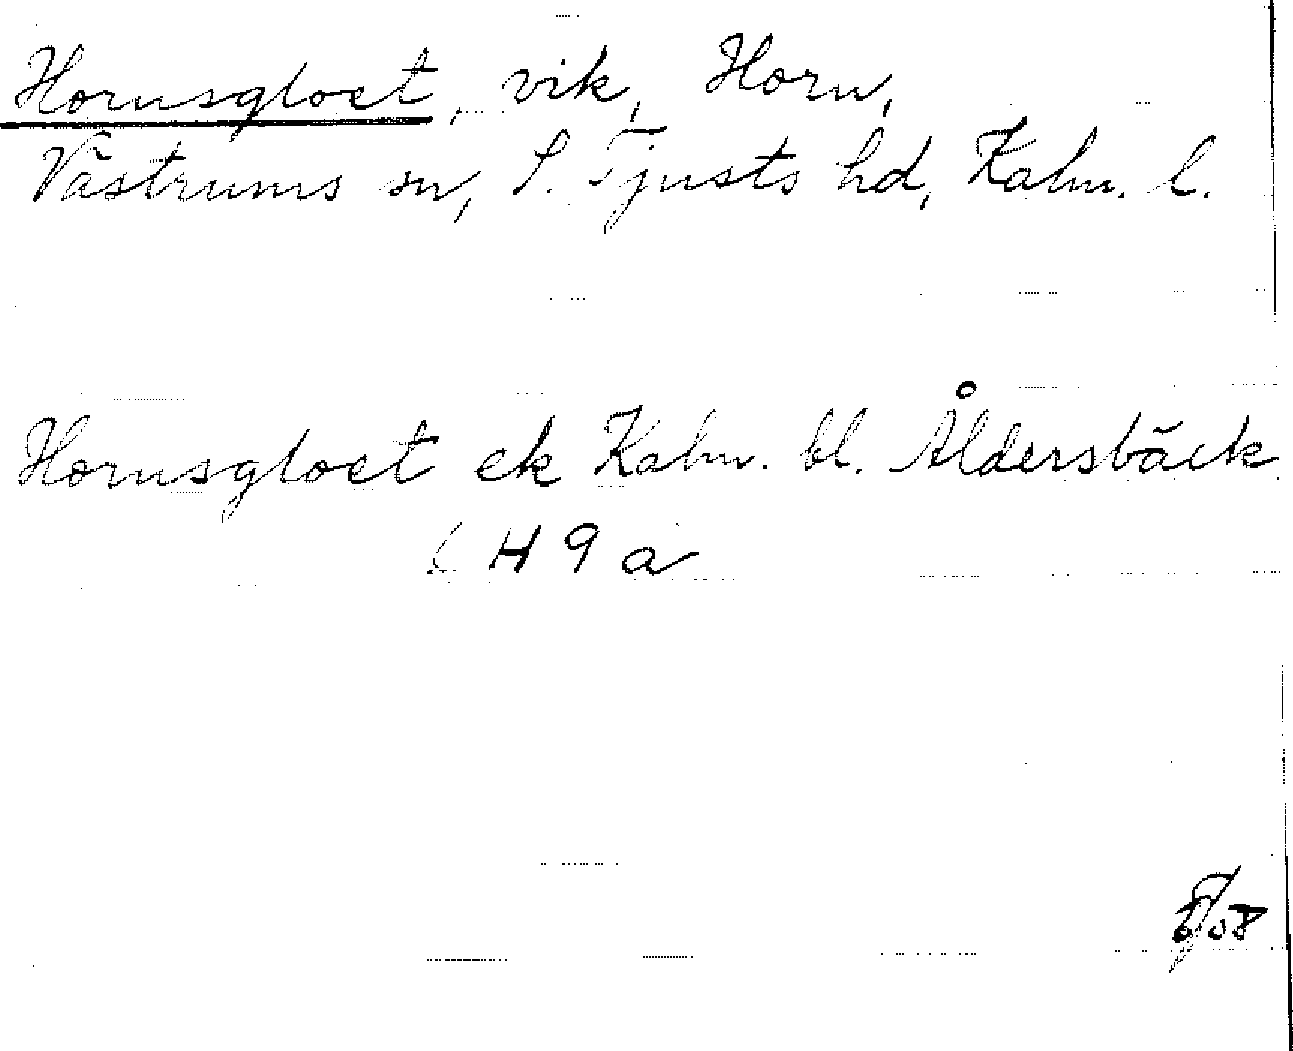 Hornsgloet, vik, Horn,
Västrums sn, S. Tjusts hd, Kalm. l.
Hornsgloet ek Kalm. bl. Åldersbäck
6 H 9 a